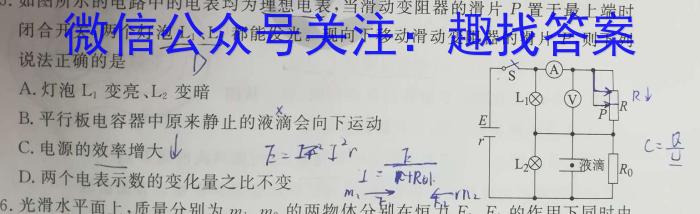 5. 如图所示的电路中的电表均为理想电表,当滑动变阻器的滑片 P 置于最上端时
微信公众号关注:趣找答案
闭合开 两个灯泡 L 都能发光。现向下移动滑动 的滑片 则下列
说法正确的是
D
A. 灯泡 L₁ 变亮、L₂ 变暗
B. 平行板电容器中原来静止的液滴会向下运动
C. 电源的效率增大↓
D. 两个电表示数的变化量之比不变
S A
L₁ V P R R↓
E
r
L₂ 液滴 R₀
C=Q/U
I²r
I=
m₁ m₂
6. 光滑水平面上,质量分别为 m₁、m₂ 的两物体分别在恒力 F₁、F₂ 的作用下同时由